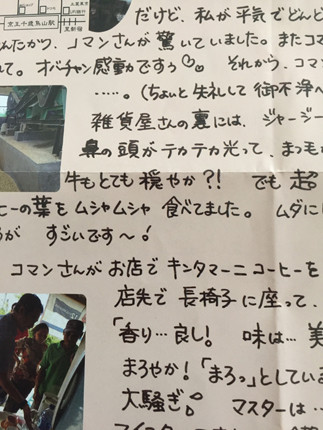 京王千歳烏山駅
至新宿
だけど、私が平気でどんど
んたかつ、コマンさんが驚いていました。またコマ
て。オバチャン感動ですぅ♡♡ それから、コマン
……。(ちょいと失礼して御不浄へ
雑貨屋さんの裏には、ジャージー
鼻の頭がテカテカ光って、まつも
牛もとても穏やか?! でも超
ヒーの葉をムシャムシャ食べてました。 ムダに
うが すごいです〜!
コマンさんがお店でキンタマーニコーヒーを
店先で長椅子に座って、
「香り…良し! 味は…美
まろやか!「まろっ」としている
大騒ぎ。 マスターは…